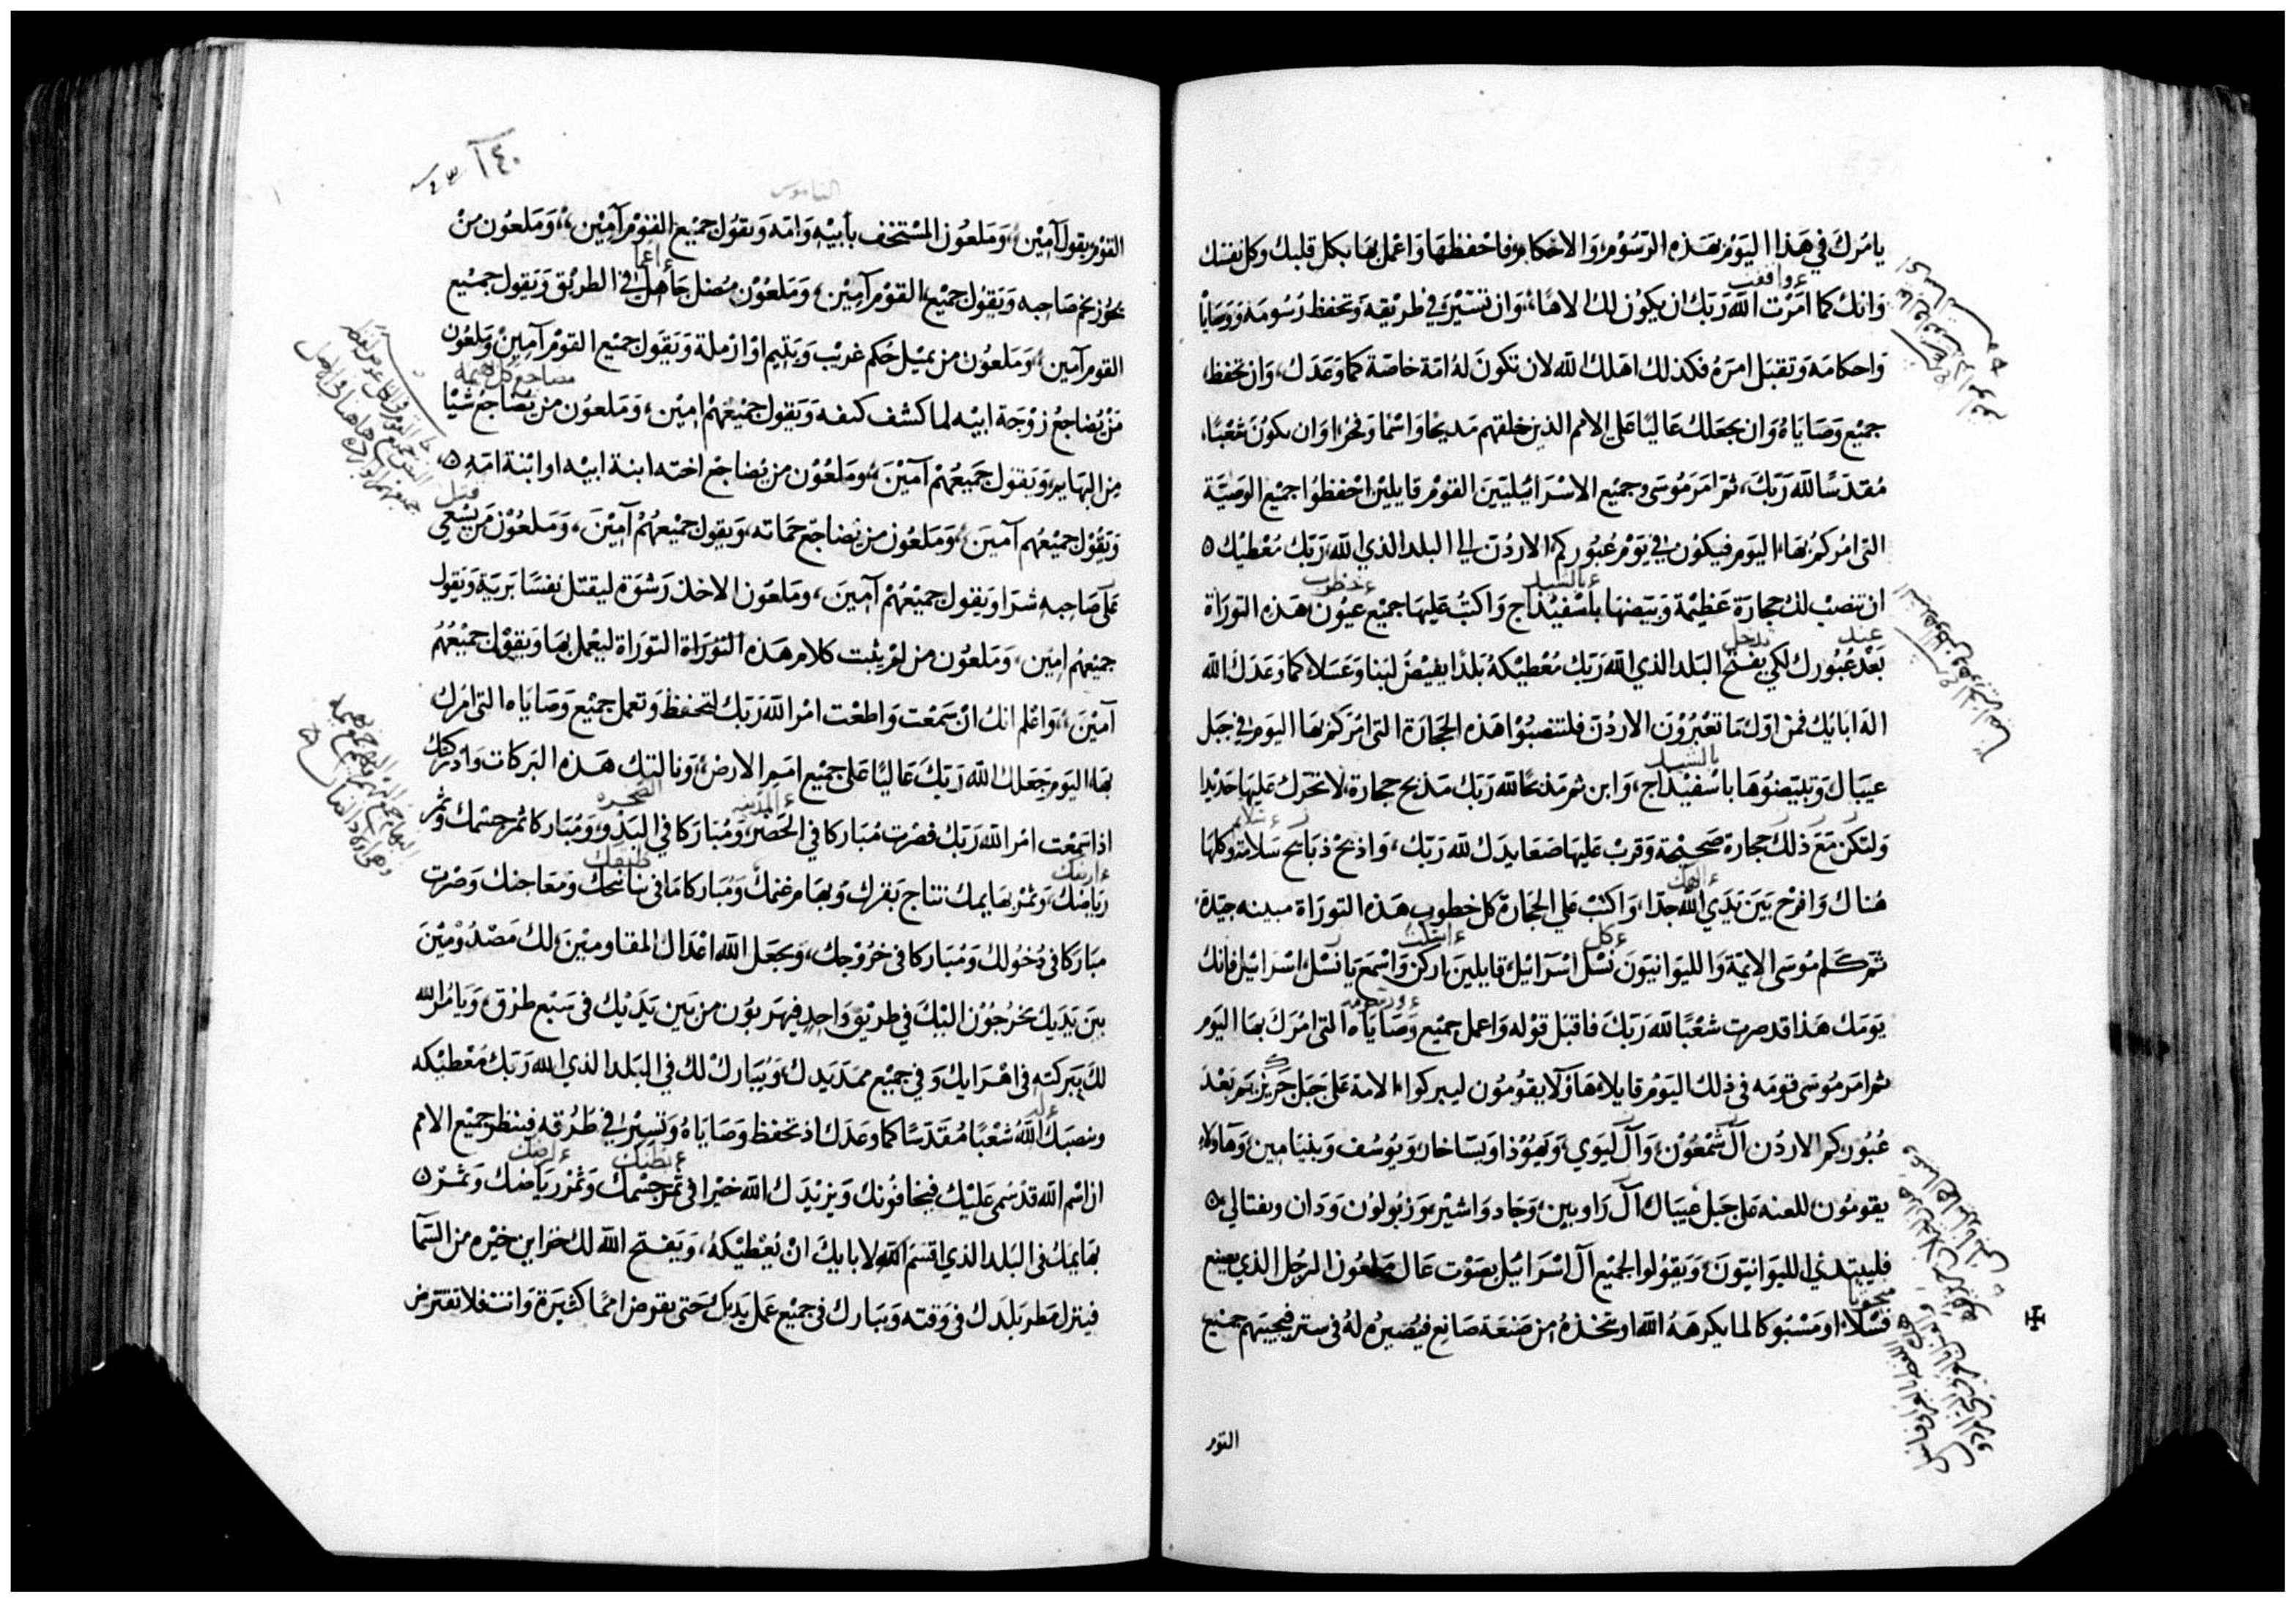 يامرك في هذا اليوم بهذه الرسوم والاحكام فاحفظها واعمل بها بكل قلبك وكل نفسك
وانك كما امرت الله ربك ان يكون لك الاهًا، وان تسير في طريقه وتحفظ رسومه ووصايا
واحكامه وتقبل امره فكذلك اهلك الله لان تكون له امة خاصة كما وعدك، وان تحفظ
جميع وصاياه وان يجعلك عاليًا على الامم الذين خلقهم مديحا واسمًا وفخرا وان يكون شعبًا،
مقدسًا لله ربك، ثم امر موسى وجميع الاسرائيليين القوم قايلين احفظوا جميع الوصية
التى امركم بها اليوم فيكون في يوم عبوركم الاردن الى البلد الذي الله ربك معطيك
ان تنصب لك حجارة عظيمة وبيضها باسفيذاج واكتب عليها جميع عيون هذه التوراة
بعد عبورك لكي يفتح البلد الذي الله ربك معطيكه بلدًا يفيض لبنا وعسلا كما وعدك الله
اله ابايك فمن اول ما تعبرون الاردن فلتنصبوا هذه الحجارة التى امركم بها اليوم في جبل
عيبال وتبيضوها باسفيذاج، وابن ثم مذبحًا لله ربك مذبح حجارة، لا تحرك عليها حديدا
ولتكن مع ذلك حجارة صحيحة وقرب عليها صعايدك لله ربك، واذبح ذبايح سلامة وكلها
هناك وافرح بين يدي الله جدا، واكتب على الحجارة كل خطوب هذه التوراة مبينه جيدة،
ثم كلم موسى الايمة والليوانيون نسل اسرائيل قايلين اركن واسمع يا نسل اسرائيل فانك
يومك هذا قد صرت شعبًا لله ربك فاقبل قوله واعمل جميع وصاياه التى امرك بها اليوم
ثم امر موسى قومه في ذلك اليوم قايلا هاولا يقومون ليبركوا الامة على جبل جريزيم بعد
عبوركم الاردن آل شمعون، وآل ليوي، ويهوذا ويساخار ويوسف وبنيامين، وهاولاء
يقومون للعنه على جبل عيبال آل راوبين، وجاد واشير وزبولون ودان ونفتالي
فليبتدئ الليوانيون، ويقولوا لجميع آل اسرائيل بصوت عال ملعون الرجل الذي يصنع
فسلا، او مسبوكا لما يكرهه الله او يتخذه من صنعة صانع فيصيره له في ستر فيجيبهم جميع
التور
الناموس
القوم يقول آمين، وملعون المستخف بأبيه وامه ويقول جميع القوم آمين، وملعون من
يحوز تخم صاحبه ويقول جميع القوم آمين، وملعون مضل جاهل في الطريق ويقول جميع
القوم آمين، وملعون من يميل حكم غريب ويتيم او ارملة ويقول جميع القوم آمين وملعون
من يضاجع زوجة ابيه لما كشف كنفه ويقول جميعهم امين، وملعون من يضاجع شيا
من البهايم، ويقول جميعهم آمين، وملعون من يضاجع اخته ابنة ابيه او ابنة امه
ويقول جميعهم آمين، وملعون من يضاجع حماته، ويقول جميعهم آمين، وملعون من يسعى
على صاحبه شرا ويقول جميعهم آمين، وملعون الاخذ رشوة ليقتل نفسًا برية ويقول
جميعهم امين، وملعون من لم يثبت كلام هذه التوراة التوراة ليعمل بها ويقول جميعهم
آمين، واعلم انك ان سمعت واطعت امر الله ربك لتحفظ وتعمل جميع وصاياه التى امرك
بها اليوم جعلك الله ربك عاليًا على جميع امم الارض، ونالتك هذه البركات وادركتك
اذا سمعت امر الله ربك فصرت مباركا في الحضر، ومباركا في البدو، ومباركا ثمر جسمك وثمر
رياضك، وثمر بهايمك نتاج بقرك وبهام غنمك، ومباركا ما في بناتحك ومعاجنك وصرت
مباركا في دخولك ومباركا في خروجك، ويجعل الله اعداك المقاومين لك مصدومين
بين يديك يخرجون اليك في طريق واحد فيهربون من بين يديك في سبع طرق، ويامر الله
لك ببركته في اهرايك وفي جميع ممد يدك، ويبارك لك في البلد الذي الله ربك معطيكه
وينصبك الله شعبًا مقدسًا كما وعدك اذ تحفظ وصاياه وتسير في طرقه فينظر جميع الامم
ان اسم الله قد سمى عليك فيخافونك ويزيدك الله خيرا في ثمر جسمك وثمر رياضك وثمر
بهايمك في البلد الذي اقسم الله لابايك ان يعطيكه، ويفتح الله لك خزاين خيره من السما
فينزل مطر بلدك في وقته ويبارك في جميع عمل يديك حتى تقرض امما كثيرة وانت فلا تقترض